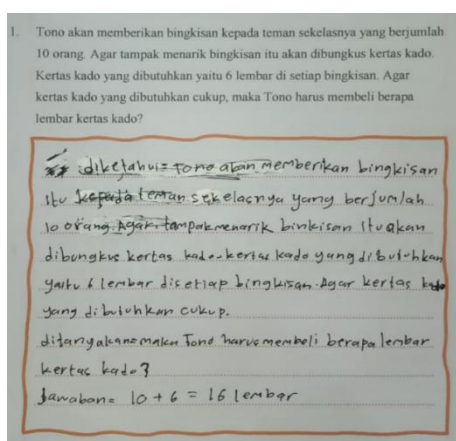 1. Tono akan memberikan bingkisan kepada teman sekelasnya yang berjumlah
10 orang. Agar tampak menarik bingkisan itu akan dibungkus kertas kado.
Kertas kado yang dibutuhkan yaitu 6 lembar di setiap bingkisan. Agar
kertas kado yang dibutuhkan cukup, maka Tono harus membeli berapa
lembar kertas kado?
diketahui= Tono akan memberikan bingkisan
itu kepada teman sekelasnya yang berjumlah
10 orang. Agar tampak menarik binkisan itu akan
dibungkus kertas kado. kertas kado yang dibutuhkan
yaitu 6 lembar disetiap bingkisan. Agar kertas kado
yang dibutuhkan cukup.
ditanyakan= maka Tono harus membeli berapa lembar
kertas kado?
Jawaban= 10 + 6 = 16 lembar